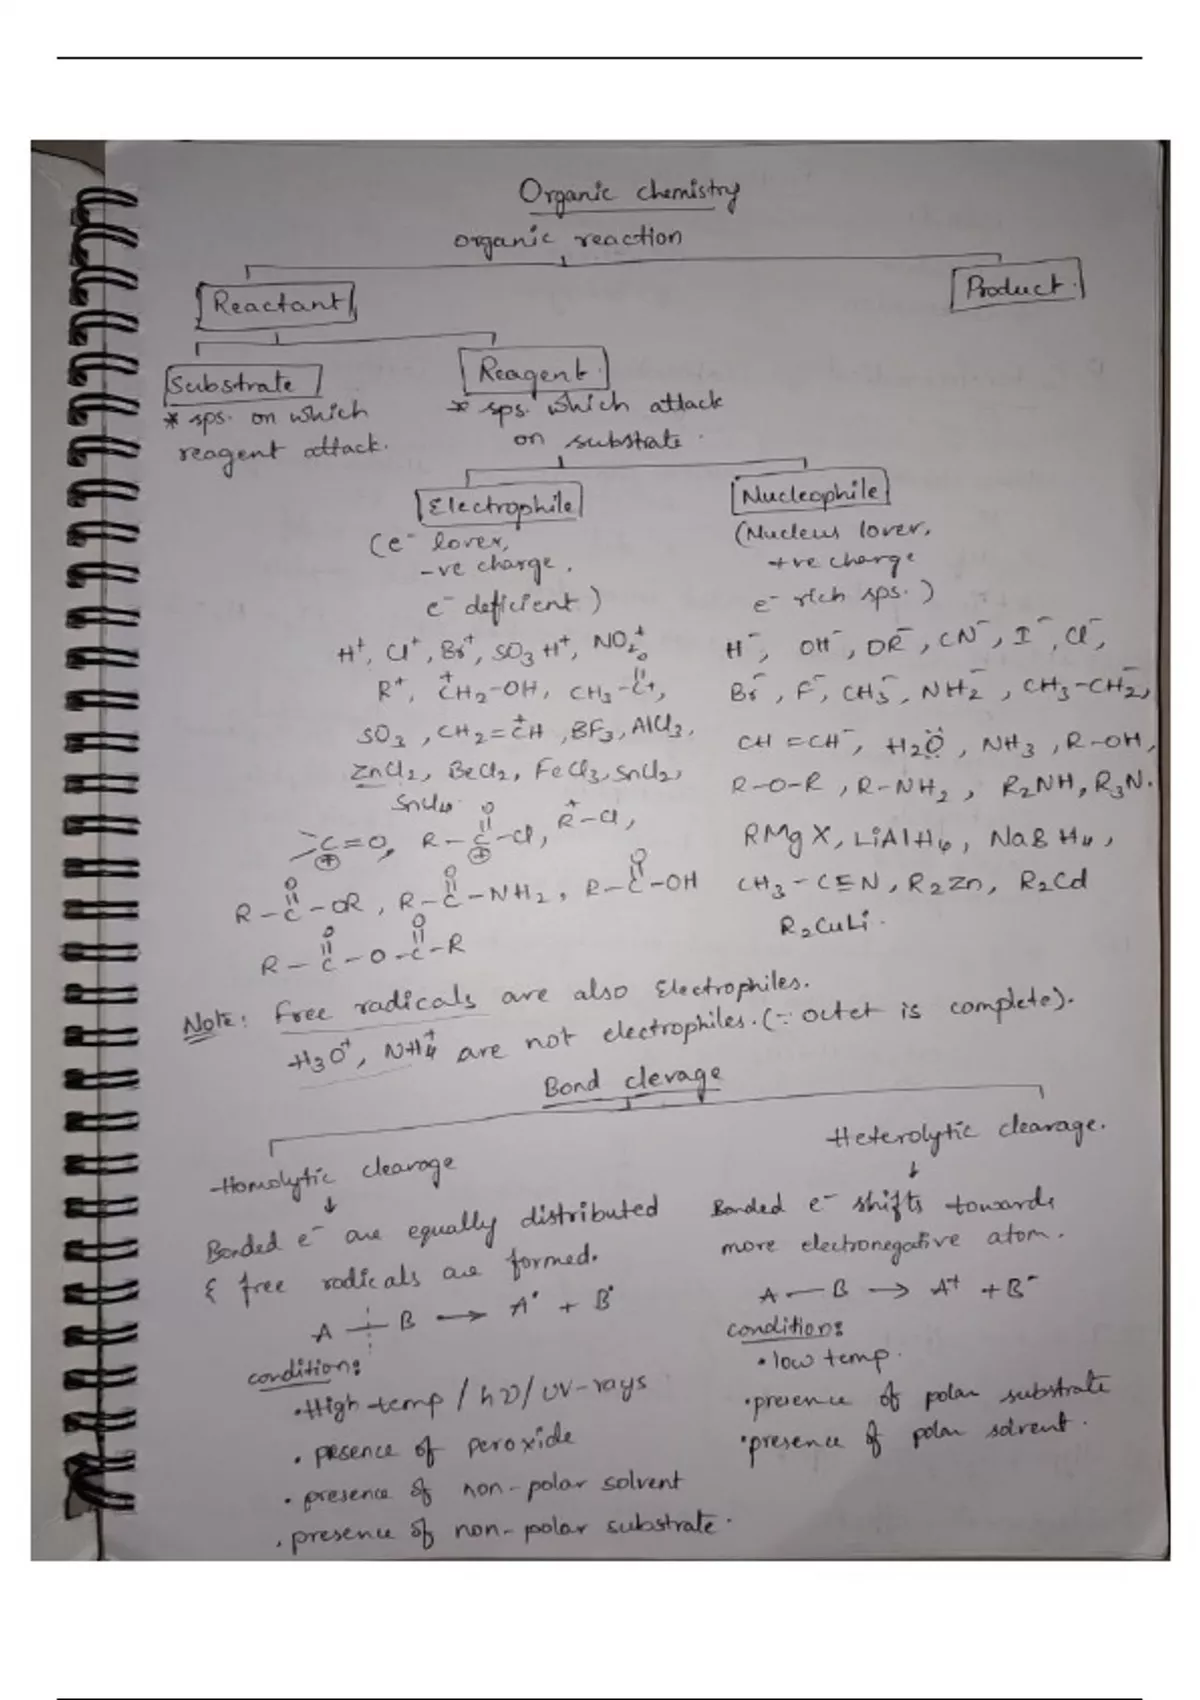 Organic chemistry
organic reaction
Reactant
Product.
Substrate
* sps. on which
reagent attack.
Reagent.
* sps. which attack
on substrate.
Electrophile
(e⁻ lover,
-ve charge,
e⁻ deficient)
Nucleophile
(Nucleus lover,
+ve charge
e⁻ rich sps.)
H⁺, Cl⁺, Br⁺, SO3 H⁺, NO2⁺
R⁺, C⁺H2-OH, CH3-C⁺=O,
SO3, CH2=C⁺H, BF3, AlCl3,
ZnCl2, BeCl2, FeCl3, SnCl2,
SnCl4.
>C=O, R-C(=O)-Cl, R⁺-Cl,
R-C(=O)-OR, R-C(=O)-NH2, R-C(=O)-OH
R-C(=O)-O-C(=O)-R
H⁻, OH⁻, OR⁻, CN⁻, I⁻, Cl⁻,
Br⁻, F⁻, CH3⁻, NH2⁻, CH3-CH2⁻,
CH=CH⁻, H2O, NH3, R-OH,
R-O-R, R-NH2, R2NH, R3N.
RMgX, LiAlH4, NaBH4,
CH3-C≡N, R2Zn, R2Cd
R2CuLi.
Note: Free radicals are also Electrophiles.
H3O⁺, NH4⁺ are not electrophiles. (∵ octet is complete).
Bond clevage
Homolytic cleavage
↓
Bonded e⁻ are equally distributed
& free radicals are formed.
A-B → A• + B•
condition:
• High temp / hν / UV-rays
• presence of peroxide
• presence of non-polar solvent
• presence of non-polar substrate.
Heterolytic cleavage.
↓
Bonded e⁻ shifts towards
more electronegative atom.
A-B → A⁺ + B⁻
condition:
• low temp.
• presence of polar substrate
• presence of polar solvent.